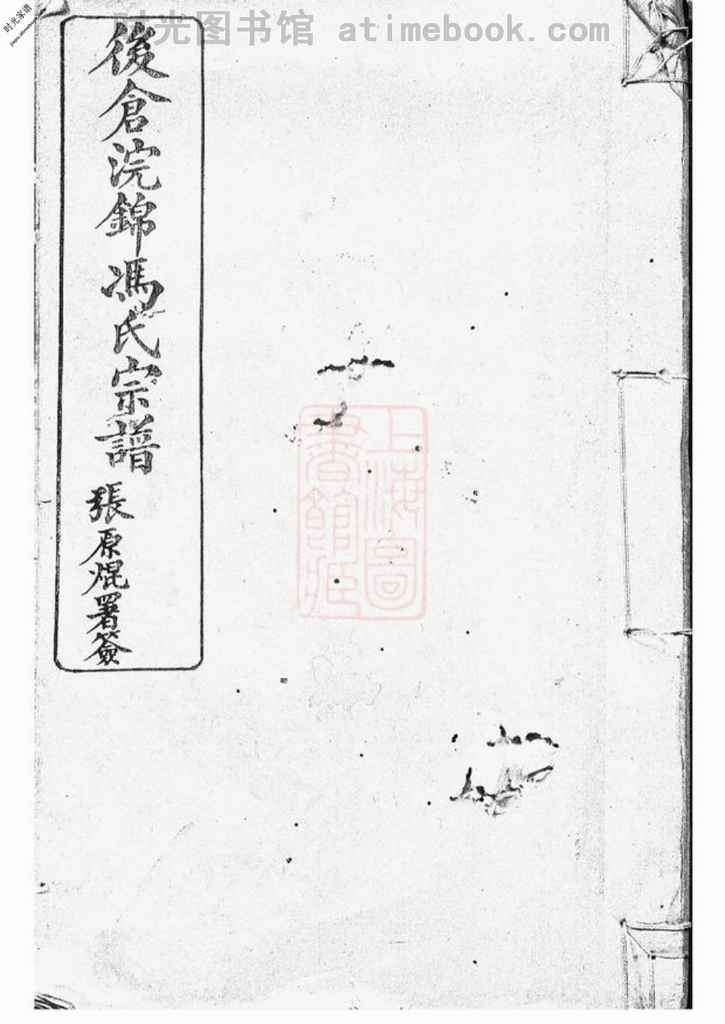 时光图书馆 atimebook.com
时光家谱
後倉浣錦馮氏宗譜
張原焜署簽
上海圖
書館藏